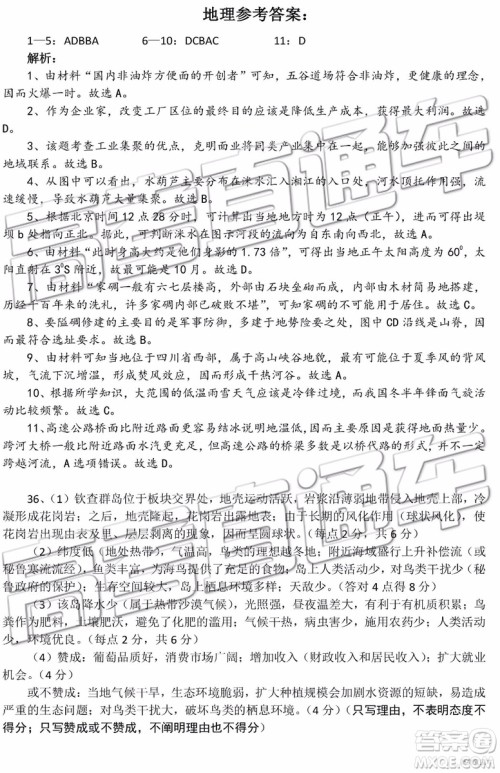 地理参考答案：
1—5：ADBBA 6—10：DCBAC 11：D
解析：
1、由材料“国内非油炸方便面的开创者”可知，五谷道场符合非油炸，更健康的理念，
因而火爆一时。故选 A。
2、作为企业家，改变工厂区位的最终目的应该是降低生产成本，获得最大利润。故选
D。
3、该题考查工业集聚的优点，克明面业等将同类产业集中在一起，可以加强企业之间的
地域联系。故选 B。
4、从图中可以看出，水葫芦主要分布在涞水汇入湘江的入口处，河水顶托作用强，流
速缓慢，导致水葫芦大量聚集。故选 B。
5、根据北京时间 12 点 28 分时，可得出当地地方时为 12 点（正午），进而得出影子朝
向 b 处指向正北，可判断涞水在图示河段的流向为自东南向西北。故选 A。
6、由材料“此时身高大约是他们身影的 1.73 倍”，可得出当地正午太阳高度为 60°，太
阳直射在 3°S 附近，故最可能是 10 月。故选 D。
7、由材料“家碉一般有六七层楼高，外部由石块垒砌而成，内部由木材简易搭建，
历经千百年来的洗礼，大部分家碉已破败不堪”，可知家碉的不可能用于居住。故选 C。
8、要隘碉修建的主要目的是军事防御，多建于地势险要之处，图中 CD 沿线是山脊，因
而最符合选址要求。故选 B。
9、由材料可知当地位于四川省西部，属于高山峡谷地貌，因而最有可能位于夏季风的背
风坡，气流下沉增温，形成焚风效应，因而生成干热河谷。故选 A。
10、根据所学知识，大范围的低温雨雪天气应该与冷锋相关，故我国冬半年锋面天气多
位于冷锋锋后。故选 C。
11、高速公路桥面比附近路面更易结冰，因而主要原因是桥面获得的地面热量少。故选
跨河大桥一般比附近路面水汽更充足，但高速公路的桥梁多是以桥代路的形式，不一定
跨越河流，A 选项错误。故选 D。
36.（1）钦查群岛位于板块交界处，地壳运动活跃，岩浆沿薄弱地带侵入地壳上部，冷
凝形成花岗岩；之后，地壳隆起，花岗岩出露地表；由于长期的风化作用（球状风化），使
花岗岩由表及里、层层剥离的现象，因而呈圆球状。（每点 2 分，共 6 分）
（2）纬度低（地处热带），气温高，鸟类的理想越冬地；附近海域盛行上升补偿流（或
秘鲁寒流流经），鱼类丰富，为海鸟提供了充足的食物；岛上人类活动少，对鸟类干扰少（秘
鲁政府的保护）；生存空间较大，岛上栖息环境多样；天敌少。（答对 4 点得 8 分）
（3）该岛降水少（属于热带沙漠气候），光照强，昼夜温差大，利于糖分积累；鸟
粪作为肥料，土壤有机质含量高，土壤肥沃；气候干旱，病虫害少，当地人类活动
少，环境优良。（每点 2 分，共 6 分）
（4）赞成：葡萄品质优，消费市场广阔；增加收入（财政收入和居民收入）；扩大就业
机会。（4 分）
或不赞成：当地气候干旱，生态环境脆弱，扩大种植规模会加剧水资源的短缺，且造成
严重的生态环境问题；对鸟类干扰大，威胁到鸟类的栖息环境。（4 分）（只写理由，不表明态度不
得分；只写赞成或不赞成，不阐明理由也不得分）
高考直通车